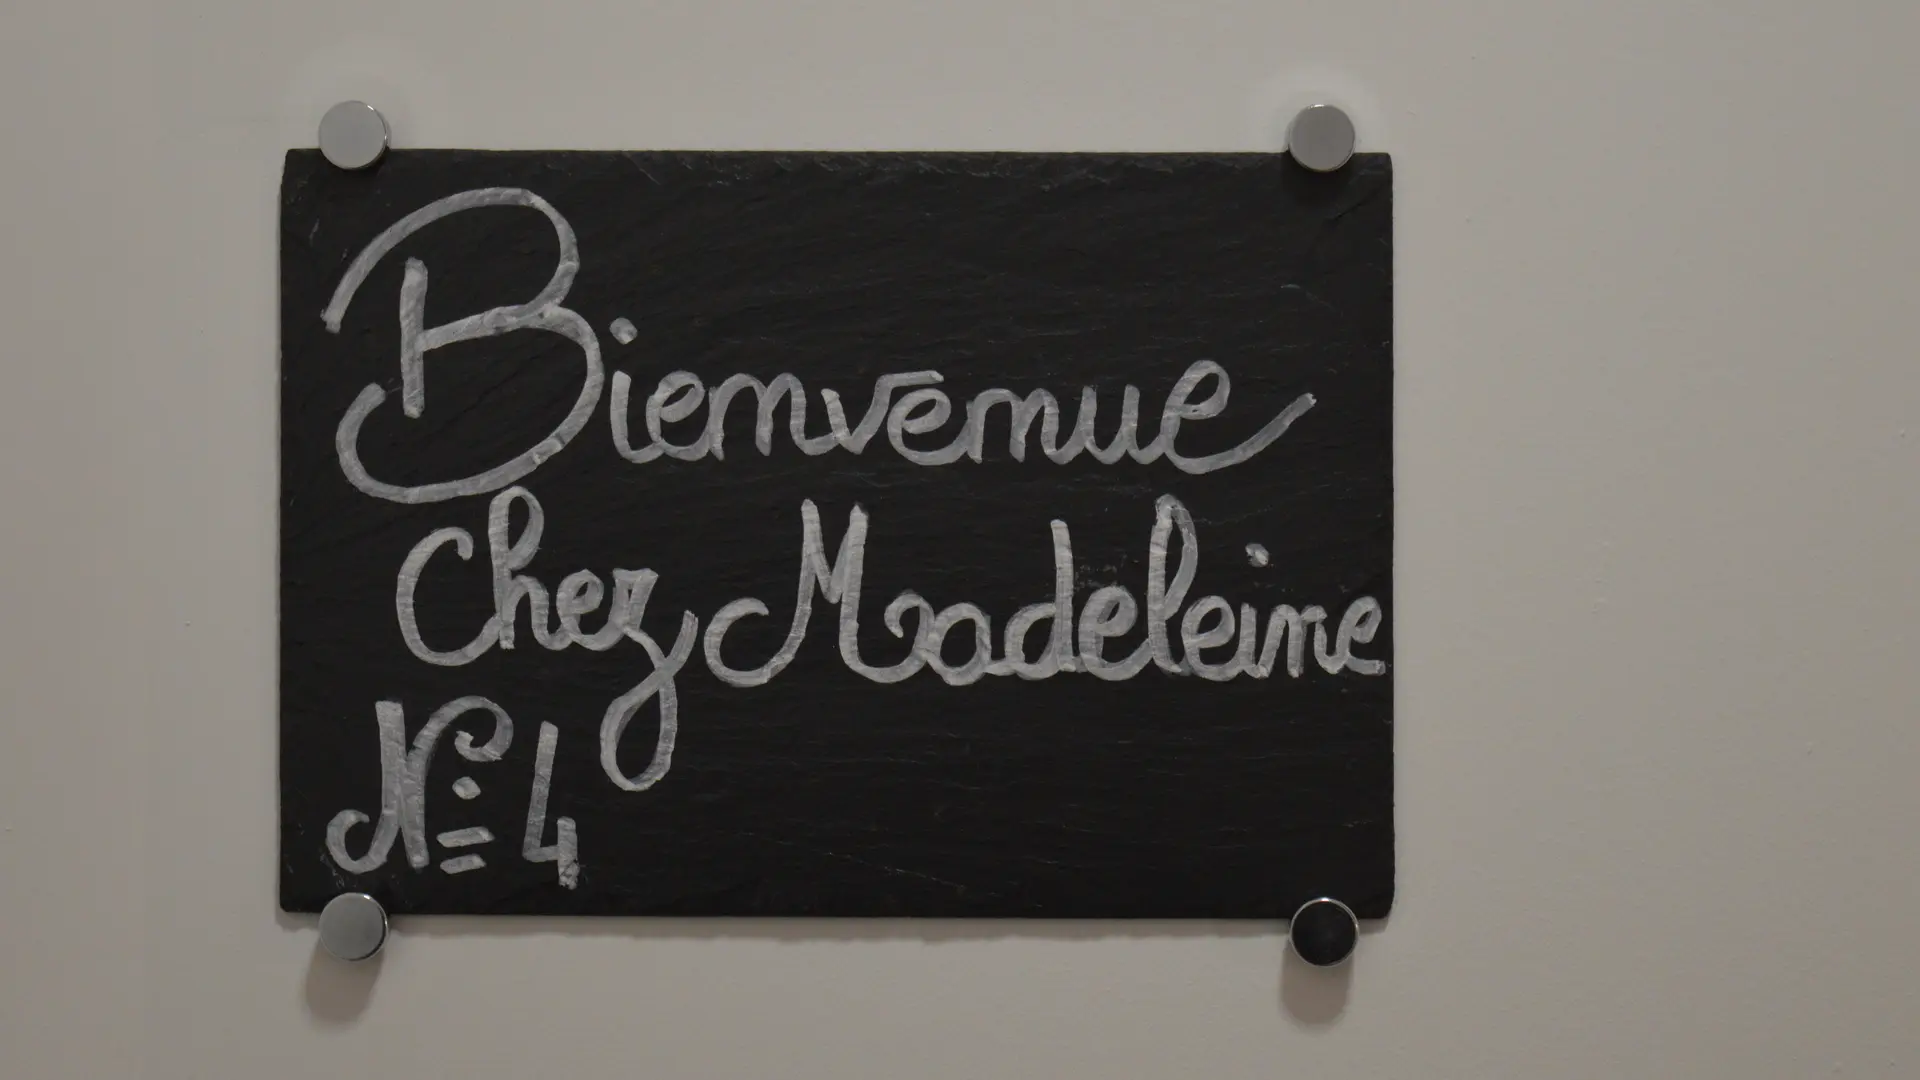 Bienvenue
Chez Madeleine
N° 4